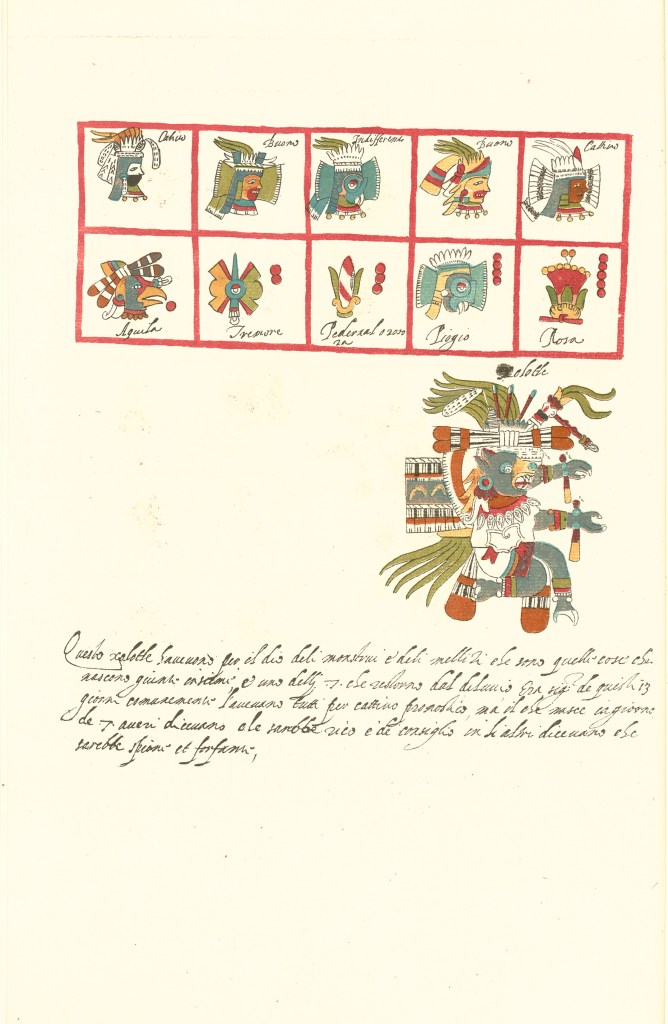 Cativo
Buono
Indifferente
Buono
Cattivo
Aquila
Tremore
Pedernal o rozo
za
Piogio
Rosa
Xolotle
Questo xolotle havevono per il dio deli monstrui e deli mellizi che sono quelle cose che
nascono giunte insieme e uno delli 7. che restorno dal deluvio Era sigr de questi 13
giorni comunemente l'avevano tutti per cattivo pronostico, ma el che nasce
de 7 averi dicevano che sarebbe rico e de consiglio in li altri dicevano che
sarebbe spione et forfante,